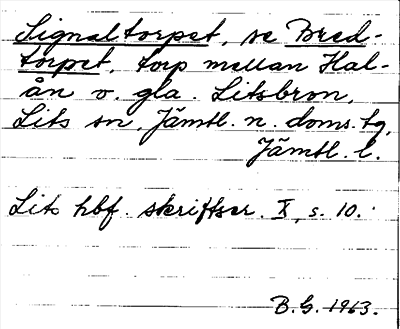 Signaltorpet, se Bred-
torpet, torp mellan Hal-
ån o. gla. Litsbron,
Lits sn, Jämtl. n. doms. tg,
Jämtl. l.
Lits hbf. skriftser. X, s. 10.
B.G. 1963.